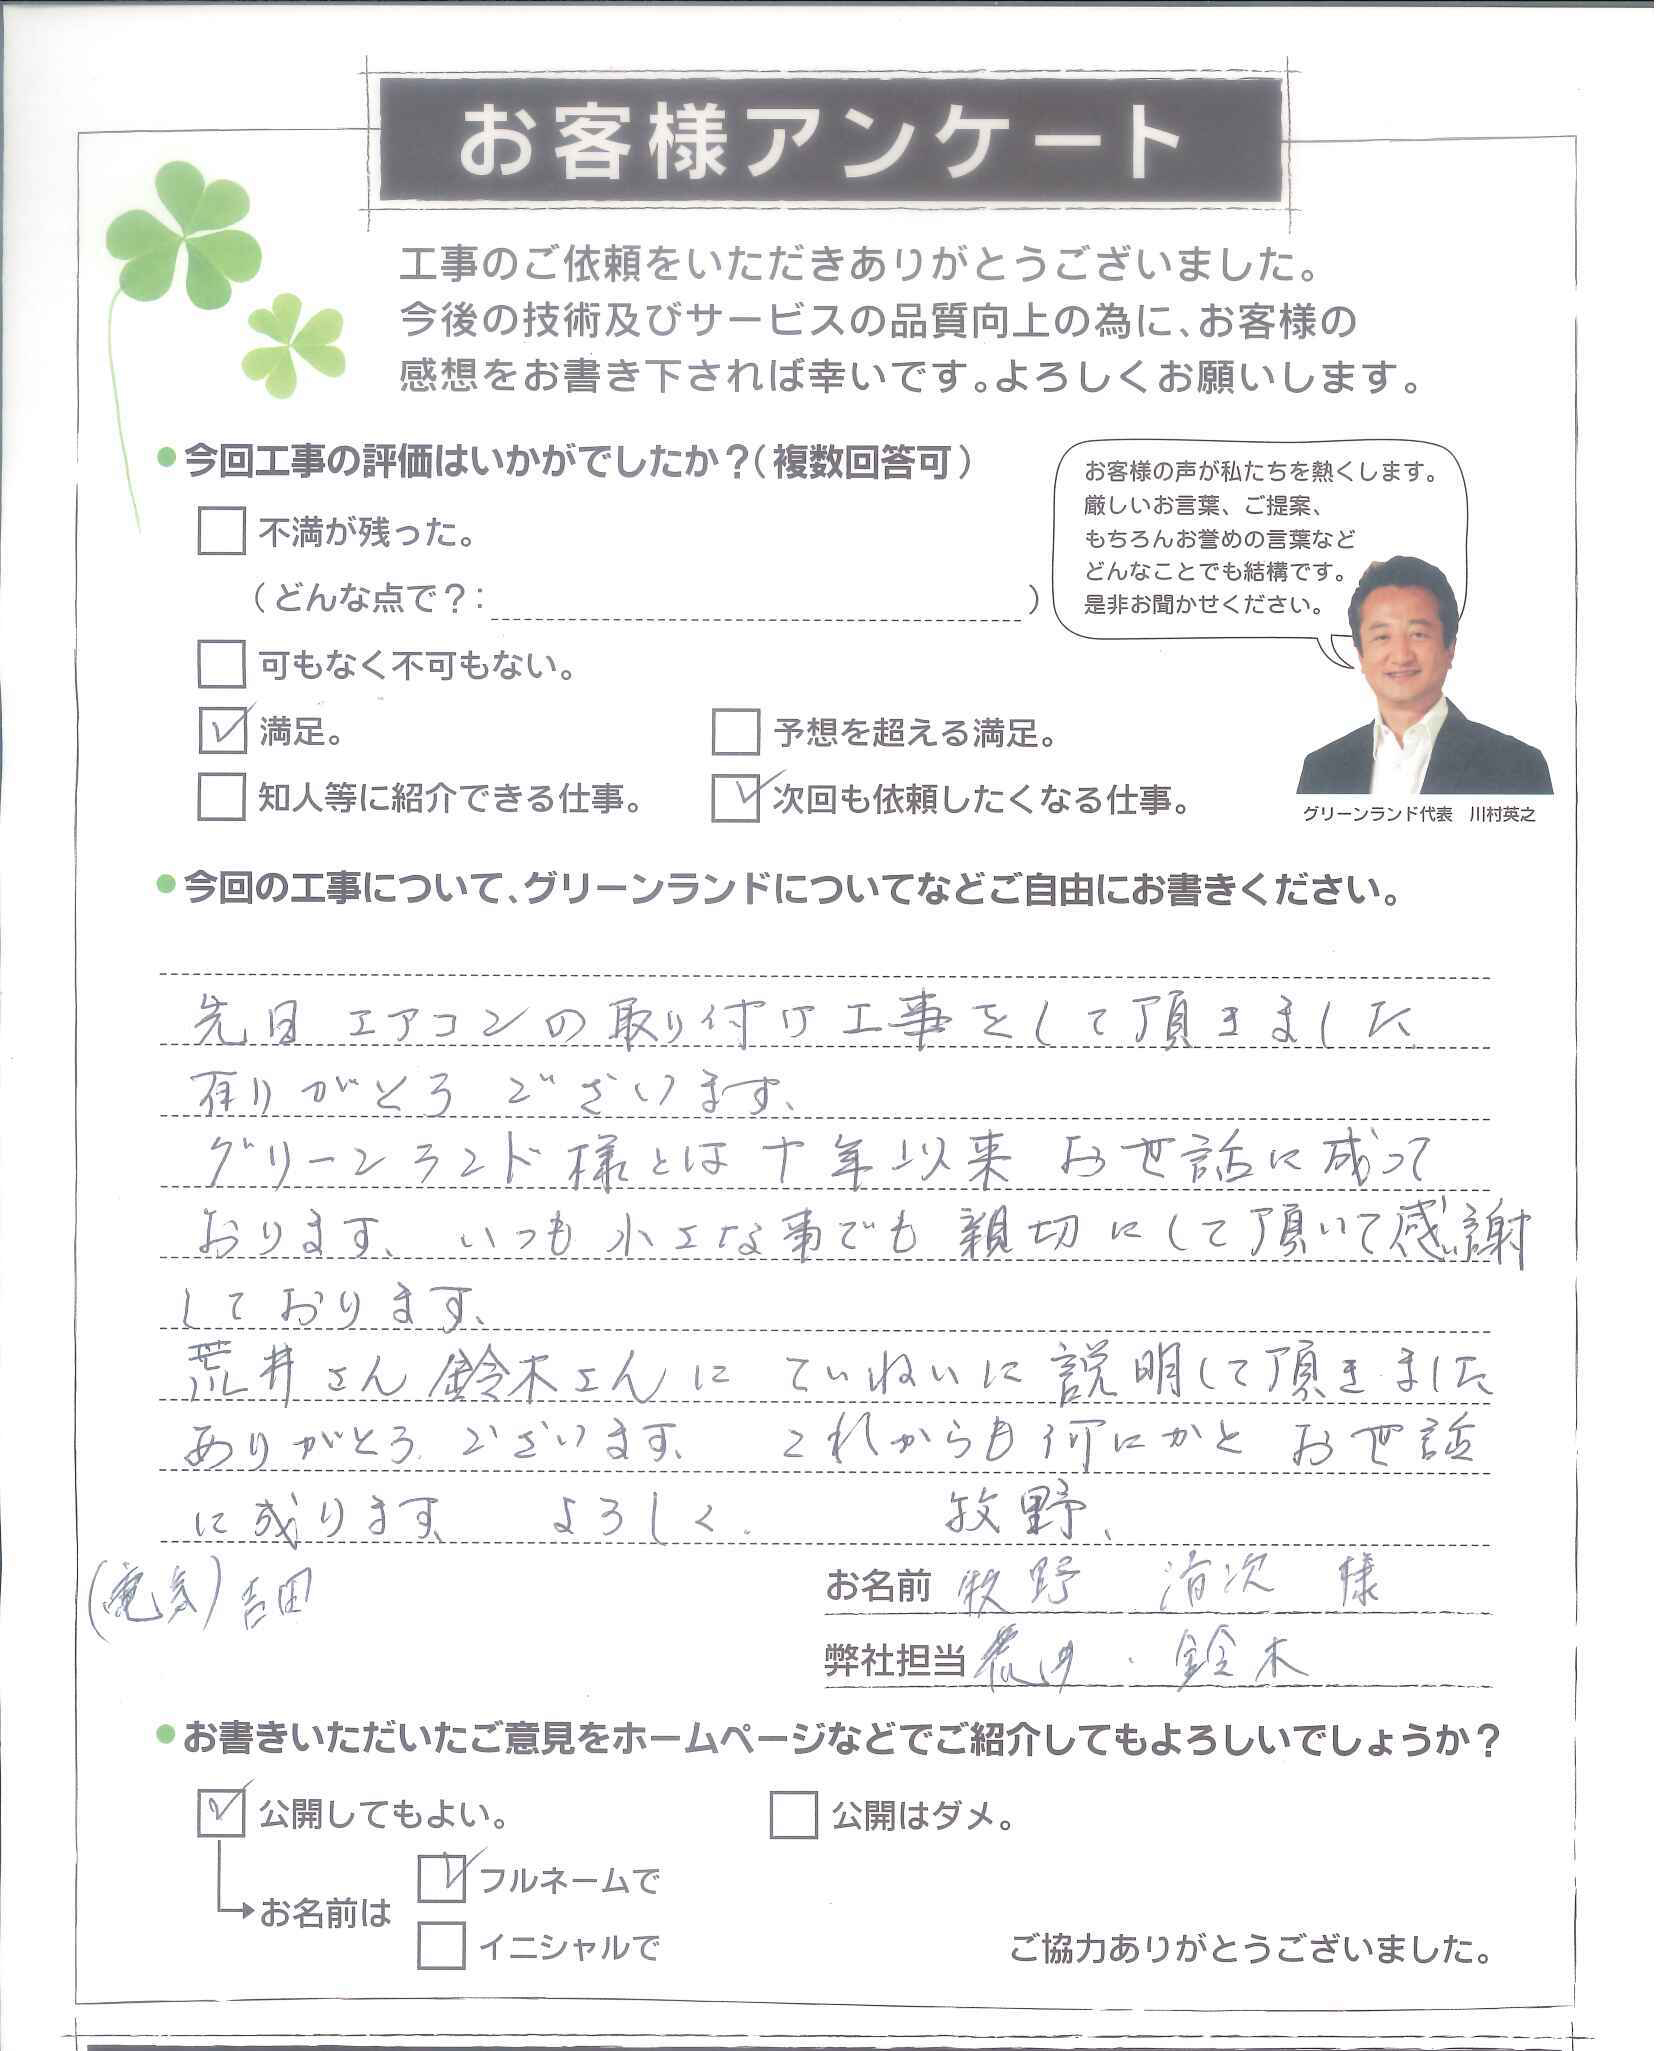 お客様アンケート
工事のご依頼をいただきありがとうございました。
今後の技術及びサービスの品質向上の為に、お客様の
感想をお書き下されば幸いです。よろしくお願いします。
●今回工事の評価はいかがでしたか？（複数回答可）
不満が残った。
（どんな点で？： ）
可もなく不可もない。
満足。
予想を超える満足。
知人等に紹介できる仕事。
次回も依頼したくなる仕事。
お客様の声が私たちを熱くします。
厳しいお言葉、ご提案、
もちろんお誉めの言葉など
どんなことでも結構です。
是非お聞かせください。
グリーンランド代表　川村英之
●今回の工事について、グリーンランドについてなどご自由にお書きください。
先日 エアコンの取り付け工事をして頂きました
有りがとう ございます、
グリーンランド様とは十年以来 お世話に成って
おります、いつも小さな事でも親切にして頂いて感謝
しております、
荒井さん鈴木さんに ていねいに説明して頂きました
ありがとう ございます、 これからも何にかと お世話
に成ります、 よろしく. 牧野、
（電気）吉田
お名前 牧野 清次 様
弊社担当 荒井・鈴木
●お書きいただいたご意見をホームページなどでご紹介してもよろしいでしょうか？
公開してもよい。
公開はダメ。
お名前は
フルネームで
イニシャルで
ご協力ありがとうございました。